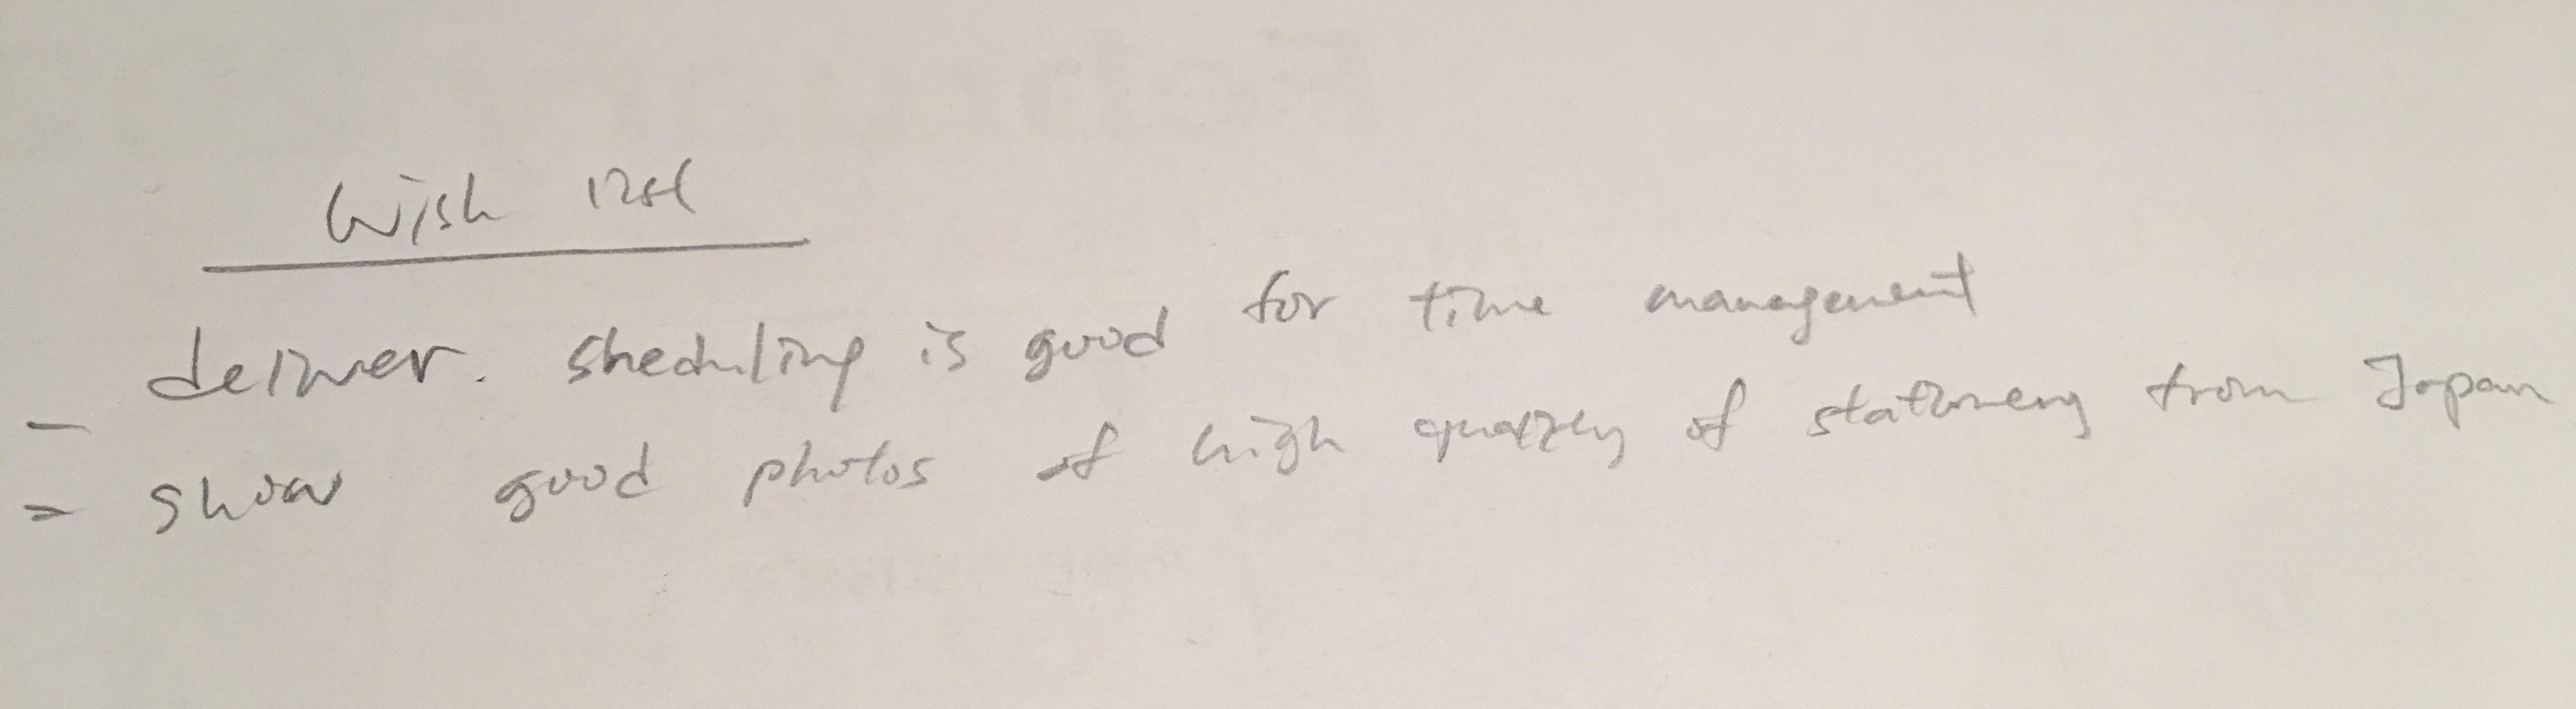 Wish list
- deliver. sheduling is good for time management
- show good photos of high quality of stationery from Japan